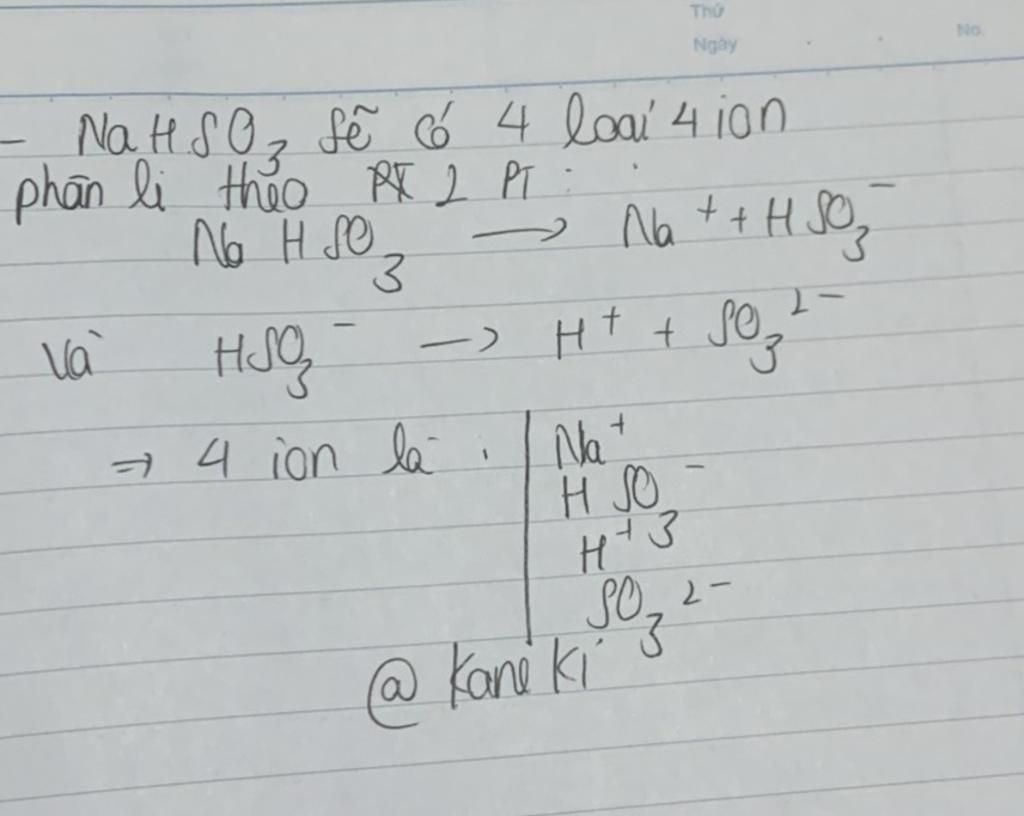 Thứ
Ngày No.
- NaHSO₃ sẽ có 4 loai' 4 ion
phân li theo 2 PT :
NaHSO₃ → Na⁺ + HSO₃⁻
Và HSO₃⁻ → H⁺ + SO₃²⁻
⇒ 4 ion là : Na⁺
HSO₃⁻
H⁺
SO₃²⁻
@ Kane Ki